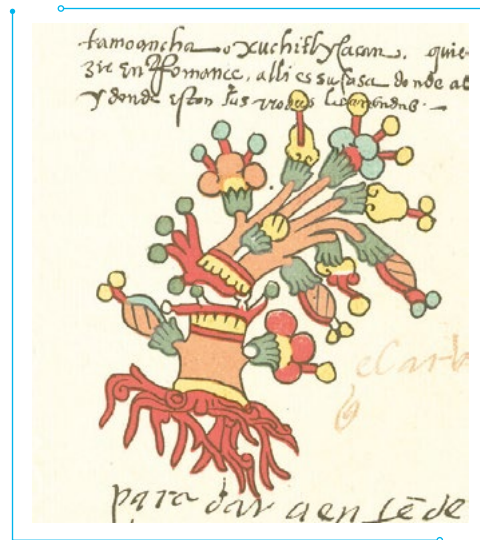 tamoancha o xuchitlycacan. quie
zir en Romance, alli es su casa donde ab
y donde eston sus
el arb
para dar a en tēde